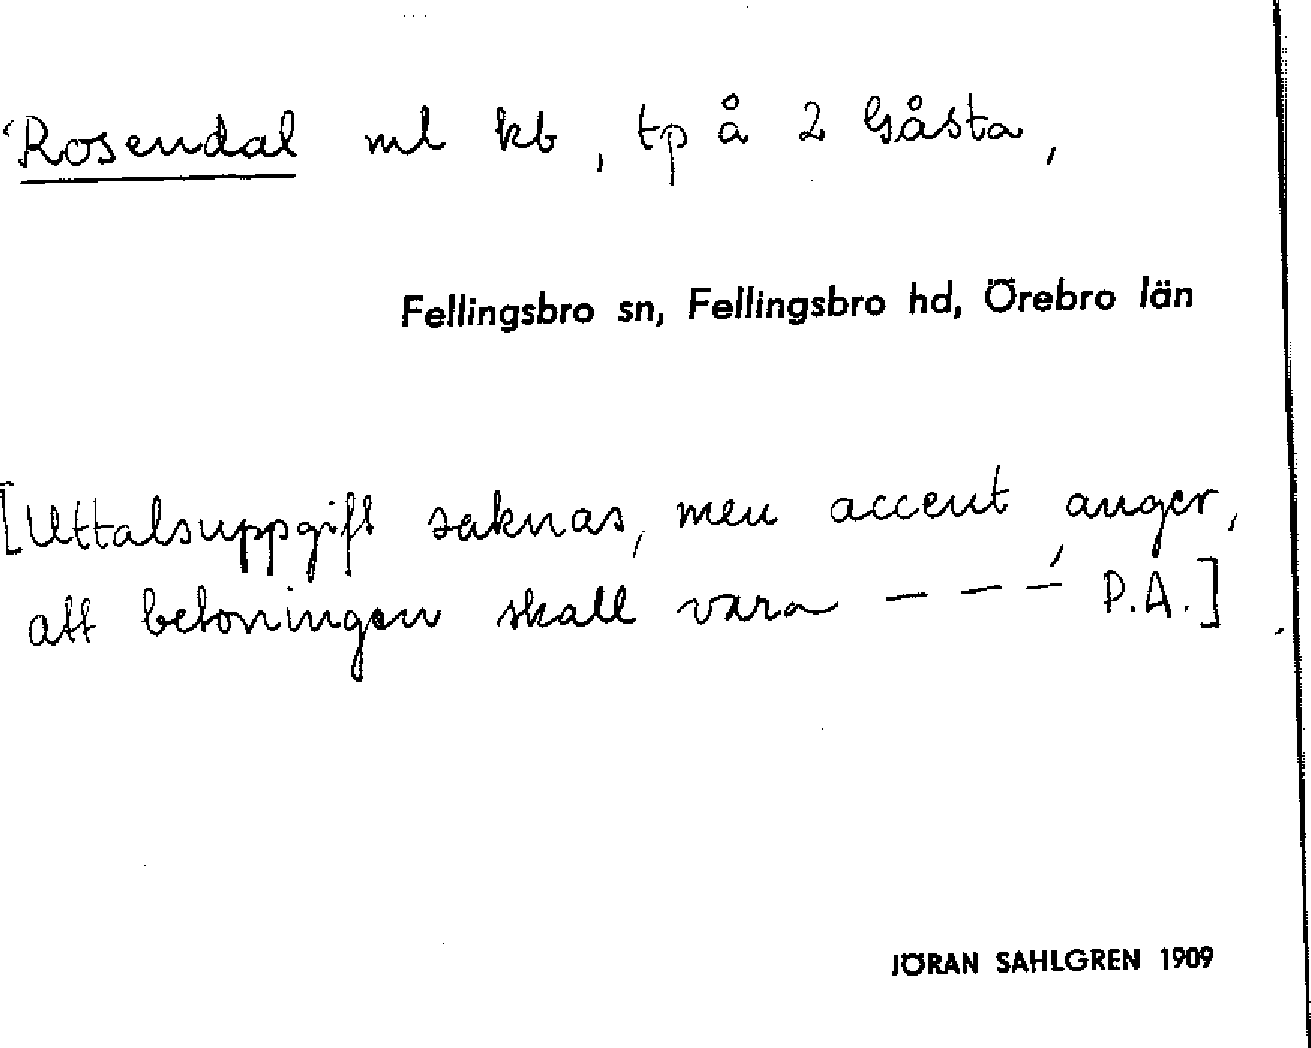 ‘Rosendal ml kb, tp å 2 Gåsta,
Fellingsbro sn, Fellingsbro hd, Örebro län
[Uttalsuppgift saknas, men accent anger,
att betoningen skall vara — — —́ P.A.]
JÖRAN SAHLGREN 1909